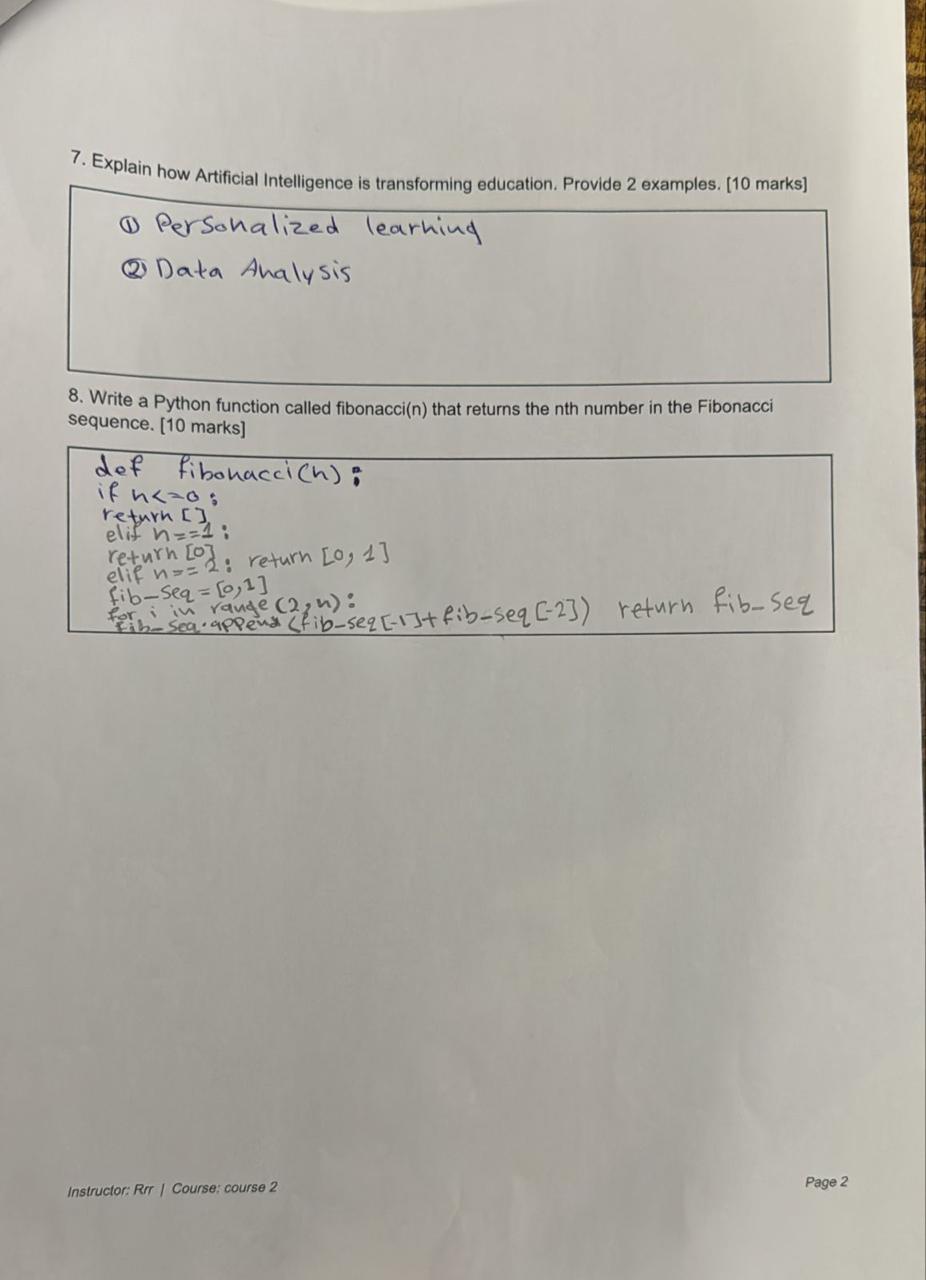 7. Explain how Artificial Intelligence is transforming education. Provide 2 examples. [10 marks]
① Personalized learning
② Data Analysis
8. Write a Python function called fibonacci(n) that returns the nth number in the Fibonacci
sequence. [10 marks]
def fibonacci(n):
if n<=0:
return []
elif n==1:
return [0]
elif n==2: return [0, 1]
fib_seq = [0,1]
for i in range (2,n):
fib_seq.append (fib_seq [-1]+fib_seq [-2]) return fib_seq
Instructor: Rrr | Course: course 2
Page 2